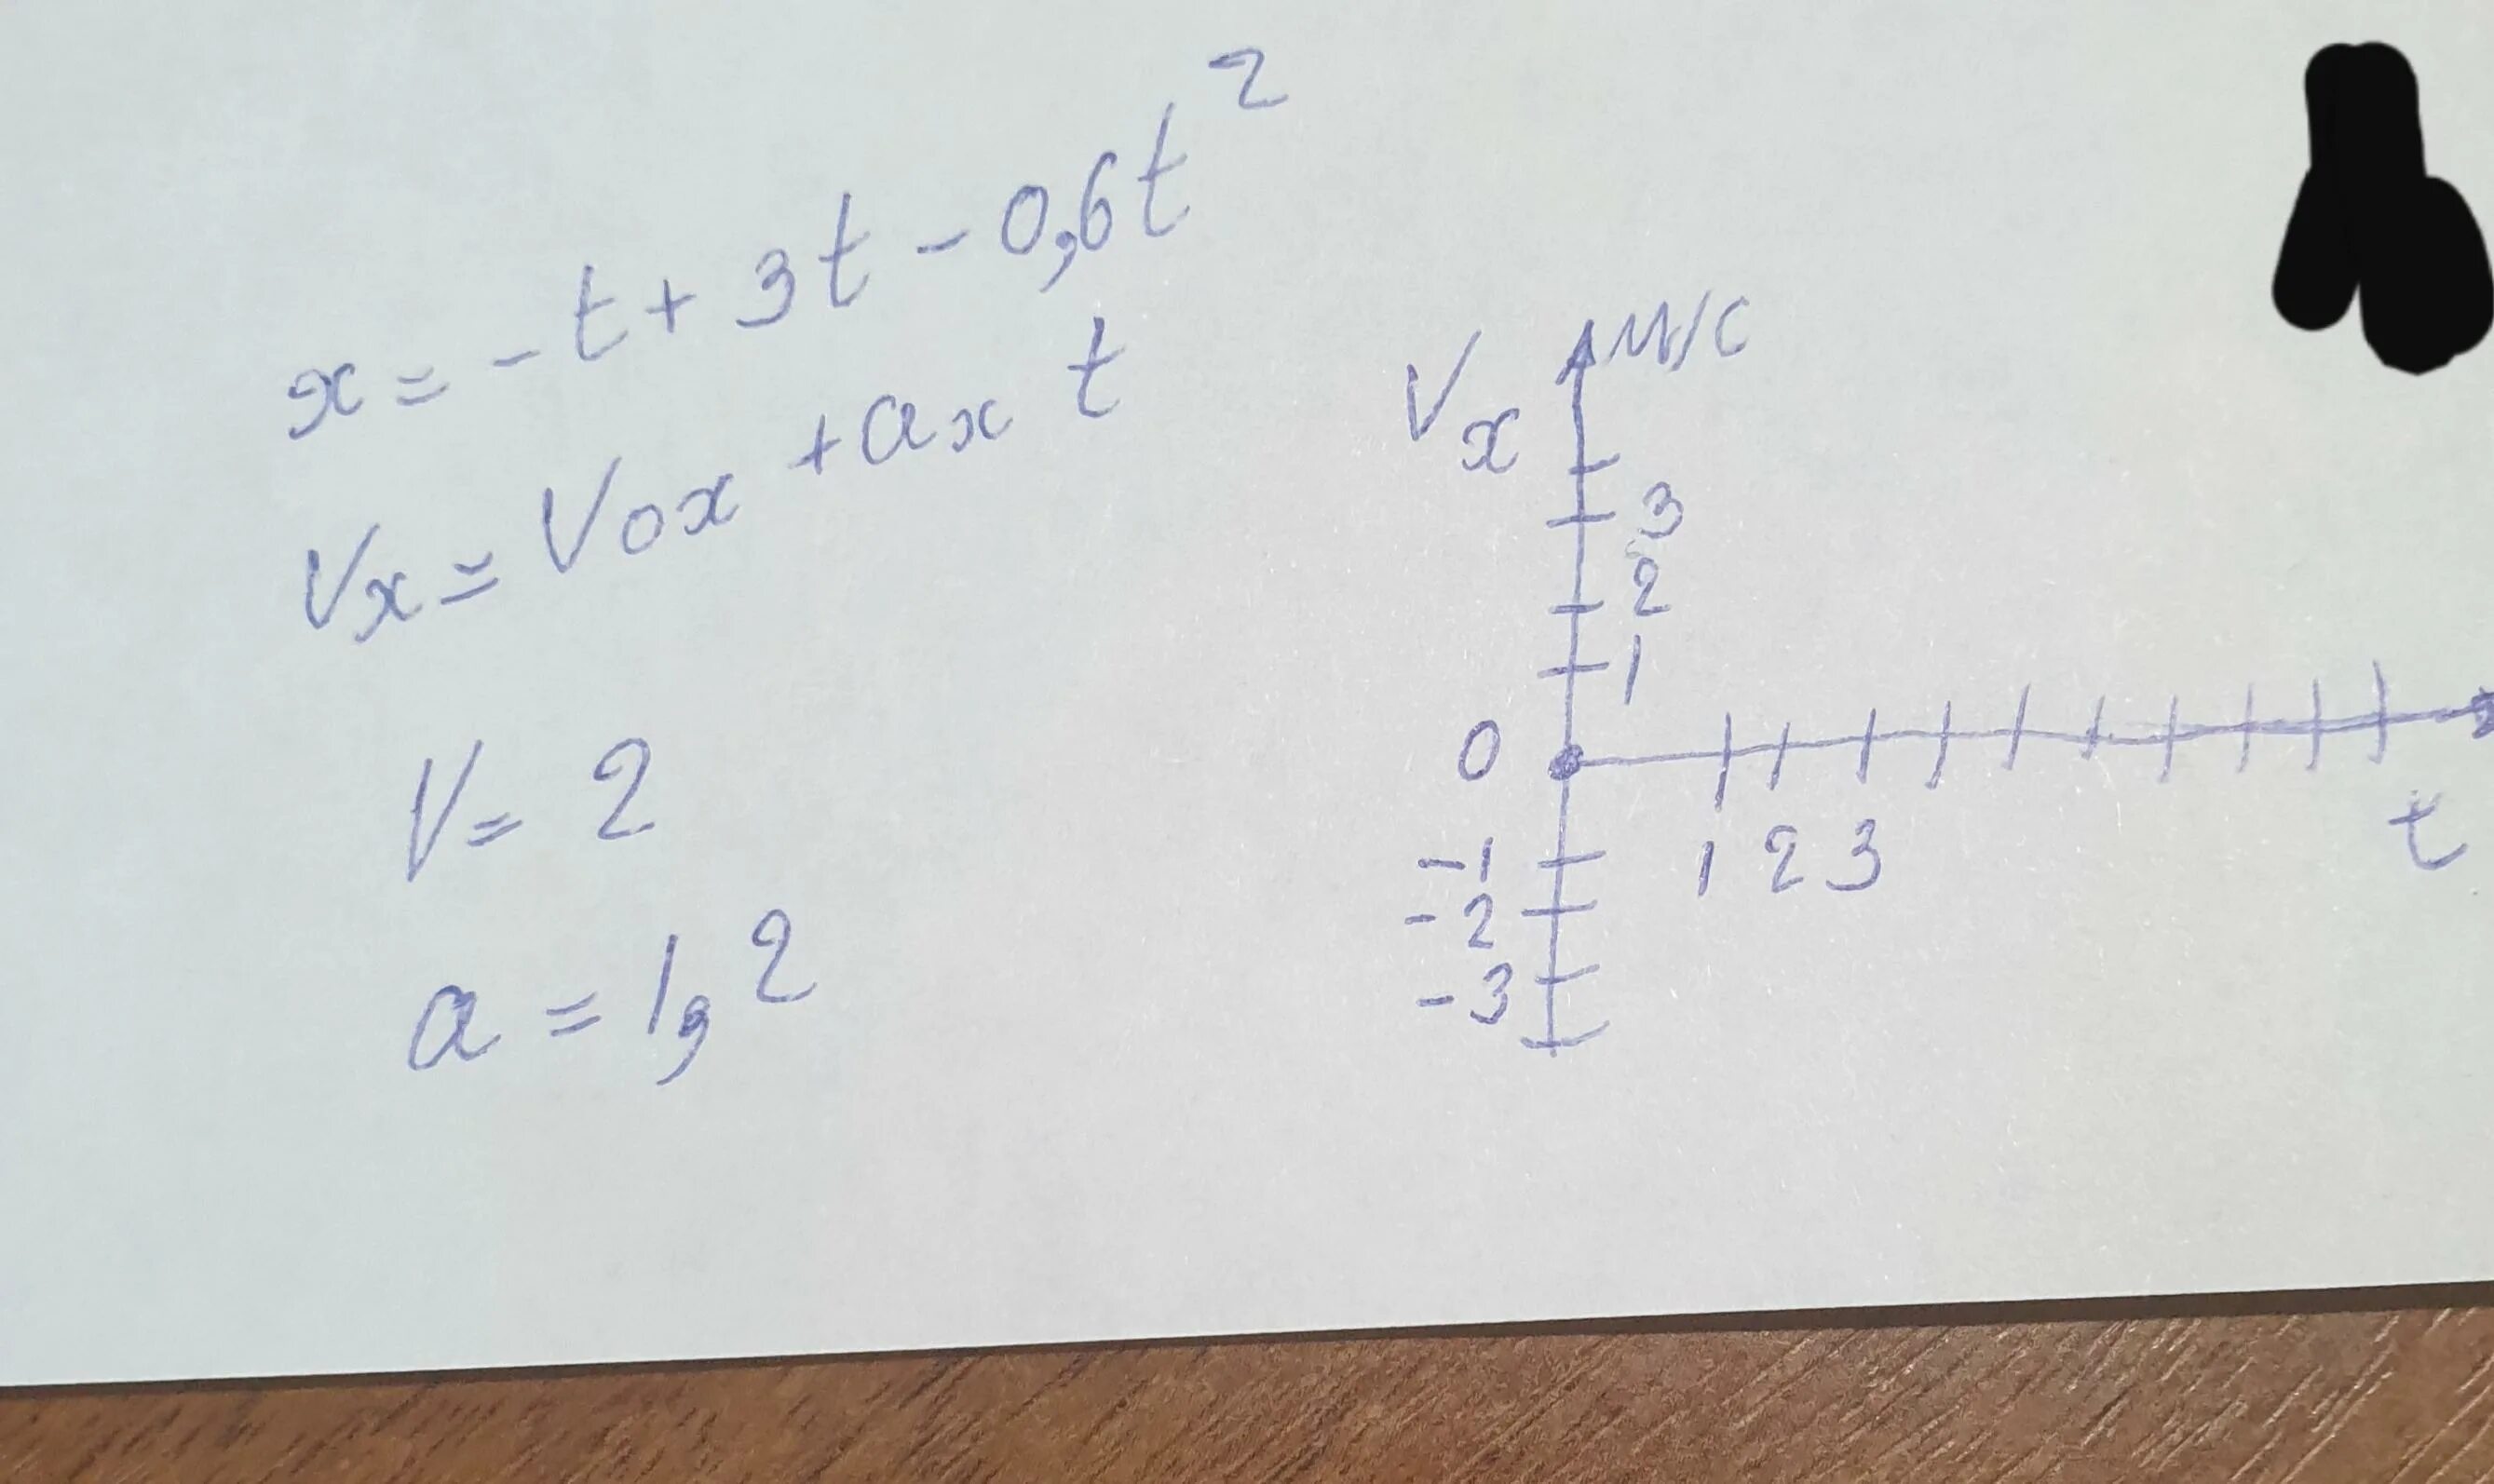 x = -t + 3t - 0,6t²
Vx = V0x + ax t
V = 2
a = 1,2
Vx м/с
3
2
1
0
-1
-2
-3
1 2 3
t